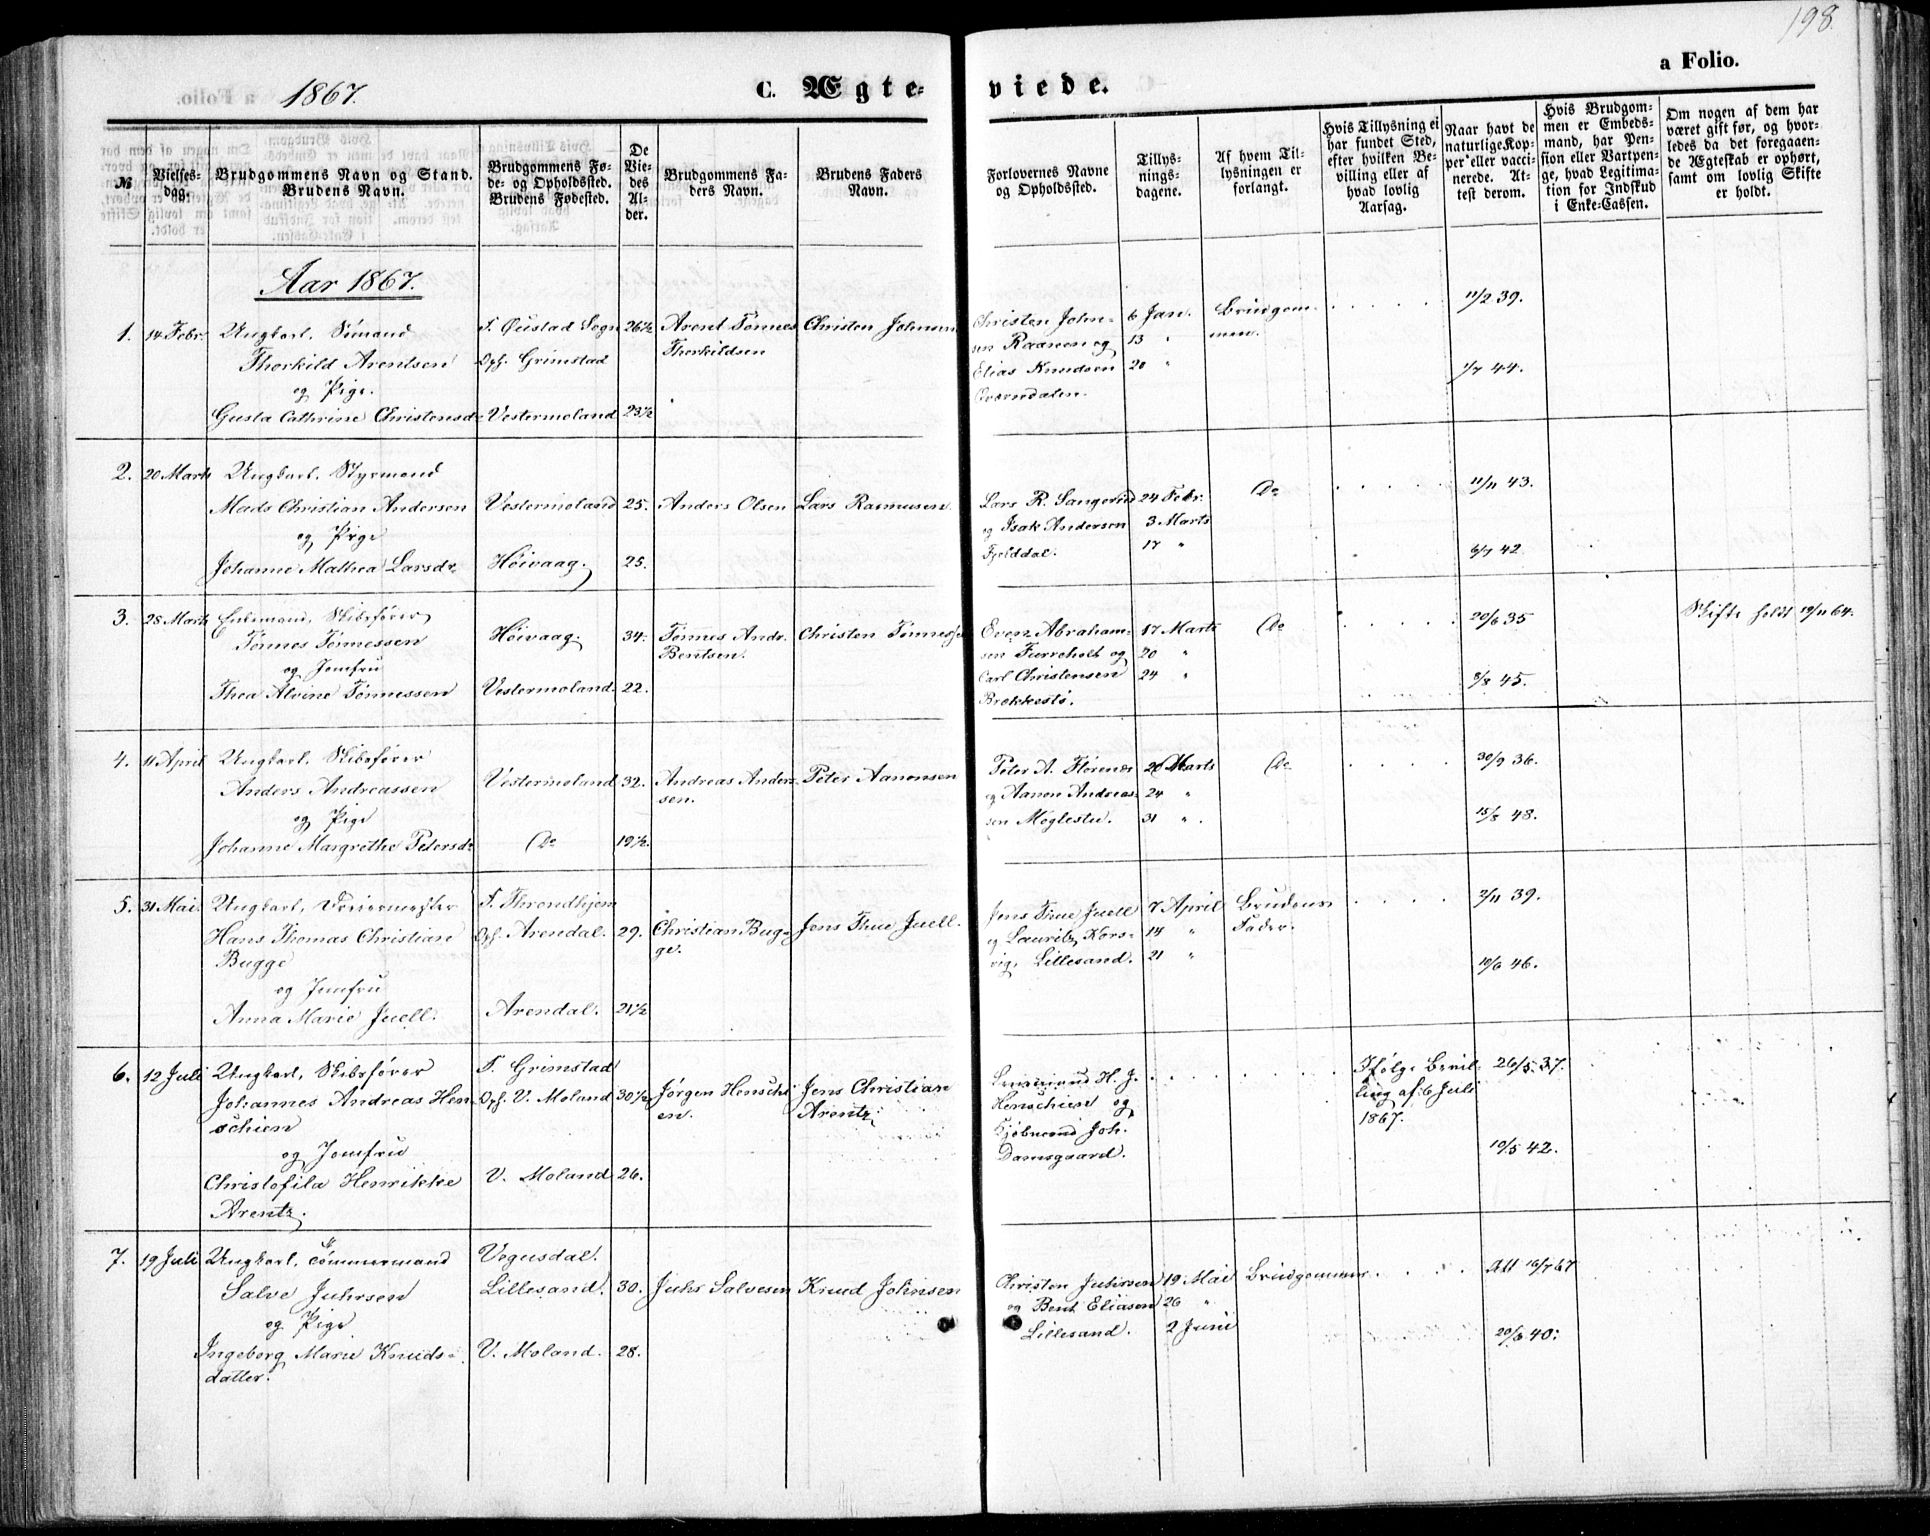 198.
1867.
C. Ægte-
viede.
a Folio.
№
Vielses-
dag.
Brudgommens Navn og Stand.
Brudens Navn.
Brudgommens Fø-
de- og Opholdssted.
Brudens Fødested.
De
Vie-
des
Al-
der.
Brudgommens Fa-
ders Navn.
Brudens Faders
Navn.
Forlovernes Navne
og Opholdssted.
Tillys-
nings-
dagene.
Af hvem Til-
lysningen er
forlangt.
Hvis Tillysning ei
har fundet Sted,
efter hvilken Be-
villing eller af
hvad lovlig
Aarsag.
Naar havt de
naturlige Kop-
per eller vacci-
nerede. At-
test derom.
Hvis Brudgom-
men er Embeds-
mand, har Pen-
sion eller Vartpen-
ge, hvad Legitima-
tion for Indskud
i Enke-Cassen.
Om nogen af dem har
været gift før, og hvor-
ledes da det foregaaen-
de Ægteskab er ophørt,
samt om lovlig Skifte
er holdt.
Aar 1867.
1. 14 Febr. Ungkarl, Sømand
Thorkild Arentsen
og Pige.
Gusta Cathrine Christensdr
F. Øiestad Sogn
Oph. Grimstad
Vestermoland
26½
23½
Arent Tønnes
Thorkildsen
Christen Johnsen
Christen John-
sen Raanen og
Elias Knudsen
6 Jan.
13 "
20 "
Brudgom-
men.
11/2 39.
1/7 44.
2. 20 Marts Ungkarl, Styrmand
Mads Christian Andersen
og Pige
Johanne Mathea Larsdr
Vestermoland
Høivaag.
25.
25.
Anders Olsen
Lars Rasmusen.
Lars R. Sangereid
og Isak Andersen
Fjelddal.
24 Febr.
3 Marts
17 "
Do
11/11 43.
6/7 42.
3. 28 Marts Enkemand, Skibsfører
Tønnes Tønnessen
og Jomfru
Thea Alvine Tønnessen
Høivaag.
Vestermoland.
34.
22.
Tønnes Andr.
Bentsen.
Christen Tønnes
Even Abraham-
sen Furreholt og
Carl Christensen
Brekkestø.
17 Marts
20 "
24 "
Do
20/6 35
8/8 45.
Skifte holdt 19/11 64.
4. 11 April Ungkarl, Skibsfører
Anders Andreassen
og Pige
Johanne Margrethe Petersdr
Vestermoland
Do
32.
19½.
Andreas Ander-
sen.
Peter Aanonsen
Peter A. Flørenæs
og Aanon Andreas-
sen Møglestu.
20 Marts
24 "
31 "
Do
30/9 36.
15/8 48.
5. 31 Mai. Ungkarl,
Hans Thomas Christian
Bugge
og Jomfru
Anna Marie Juell.
F. Throndhjem
Oph. Arendal.
Arendal.
29.
21½
Christian Bug-
ge.
Jens Thue Juell.
Jens Thue Juell
og Lauritz Kors-
vig, Lillesand.
7 April
14 "
21 "
Brudens
Fader.
2/11 39.
10/6 46.
6. 12 Juli Ungkarl, Skibsfører
Johannes Andreas Hen-
schien
og Jomfru
Christofila Henrikke
Arentz.
F. Grimstad
Oph. V. Moland
V. Moland
30½
26.
Jørgen Henschi
en.
Jens Christian
Arentz.
H. J.
Henschien og
Kjøbmand Joh.
Damsgaard.
Ifølge Bevil-
ling af 6 Juli
1867.
26/5 37.
10/5 42.
7. 19 Juli Ungkarl, Tømmermand
Salve Juhrsen
og Pige
Ingeborg Marie Knuds-
datter.
Vegusdal.
Lillesand.
V. Moland.
30.
28.
Juhr Salvesen
Knud Johnsen
Christen Juhrsen
og Bent Eliasen
Lillesand.
19 Mai
26 "
2 Juni
Brudgommen
Att 16/7 67
20/8 40.